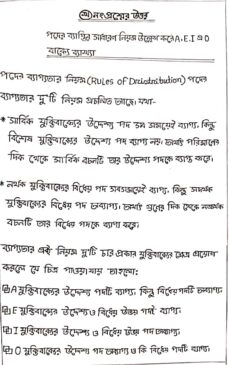 ৩নং প্রশ্নের উত্তর
পদের ব্যাপ্তির সাধারণ নিয়ম উল্লেখ করে A, E, I ও O
বাক্যে ব্যাখ্যা
পদের ব্যাপ্যতার নিয়ম (Rules of Dristribution) পদের
ব্যাপ্যতার দু'টি নিয়ম প্রচলিত আছে। যথা-
* সার্বিক যুক্তিবাক্যের উদ্দেশ্য পদ সব সময়েই ব্যাপ্য, কিন্তু
বিশেষ যুক্তিবাক্যের উদ্দেশ্য পদ ব্যাপ্য নয়। অর্থাৎ পরিমাণের
দিক থেকে সার্বিক বচনটি তার উদ্দেশ্য পদকে ব্যাপ্ত করে।
* নঞর্থক যুক্তিবাক্যের বিধেয় পদ সবসময়েই ব্যাপ্য, কিন্তু সদর্থক
যুক্তিবাক্যের বিধেয় পদ অব্যাপ্য। অর্থাৎ গুণের দিক থেকে নঞর্থক
বচনটি তার বিধেয় পদকে ব্যাপ্য করে।
ব্যাপ্যতার এই নিয়ম দু'টি চার প্রকার যুক্তিবাক্যের ক্ষেত্রে প্রয়োগ
করলে যে চিত্র পাওয়া যায় তাহলো:
A যুক্তিবাক্যের উদ্দেশ্য পদটি ব্যাপ্য, কিন্তু বিধেয় পদটি অব্যাপ্য।
E যুক্তিবাক্যের উদ্দেশ্য ও বিধেয় উভয় পদই ব্যাপ্য।
I যুক্তিবাক্যের উদ্দেশ্য ও বিধেয় উভয় পদ অব্যাপ্য।
O যুক্তিবাক্যের উদ্দেশ্য পদ অব্যাপ্য ও কি বিধেয় পদটি ব্যাপ্য।